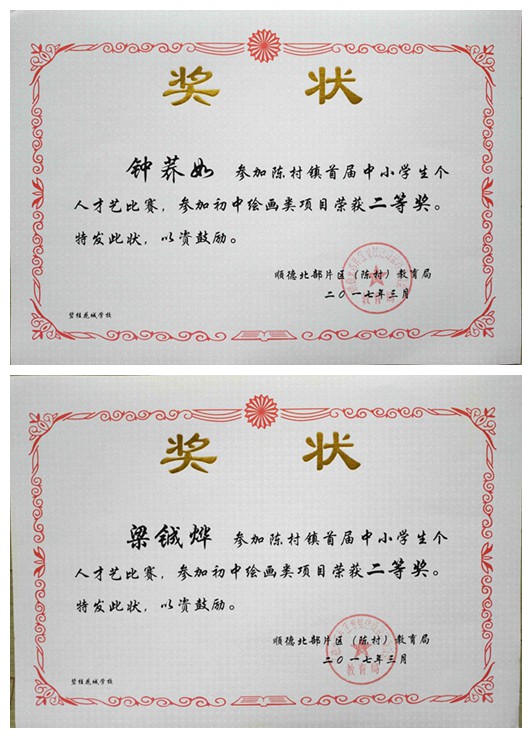 奖 状
钟荞如 参加陈村镇首届中小学生个
人才艺比赛，参加初中绘画类项目荣获二等奖。
特发此状，以资鼓励。
顺德北部片区（陈村）教育局
二〇一七年三月
教育局
碧桂花城学校
奖 状
梁铖烨 参加陈村镇首届中小学生个
人才艺比赛，参加初中绘画类项目荣获二等奖。
特发此状，以资鼓励。
顺德北部片区（陈村）教育局
二〇一七年三月
教育局
碧桂花城学校